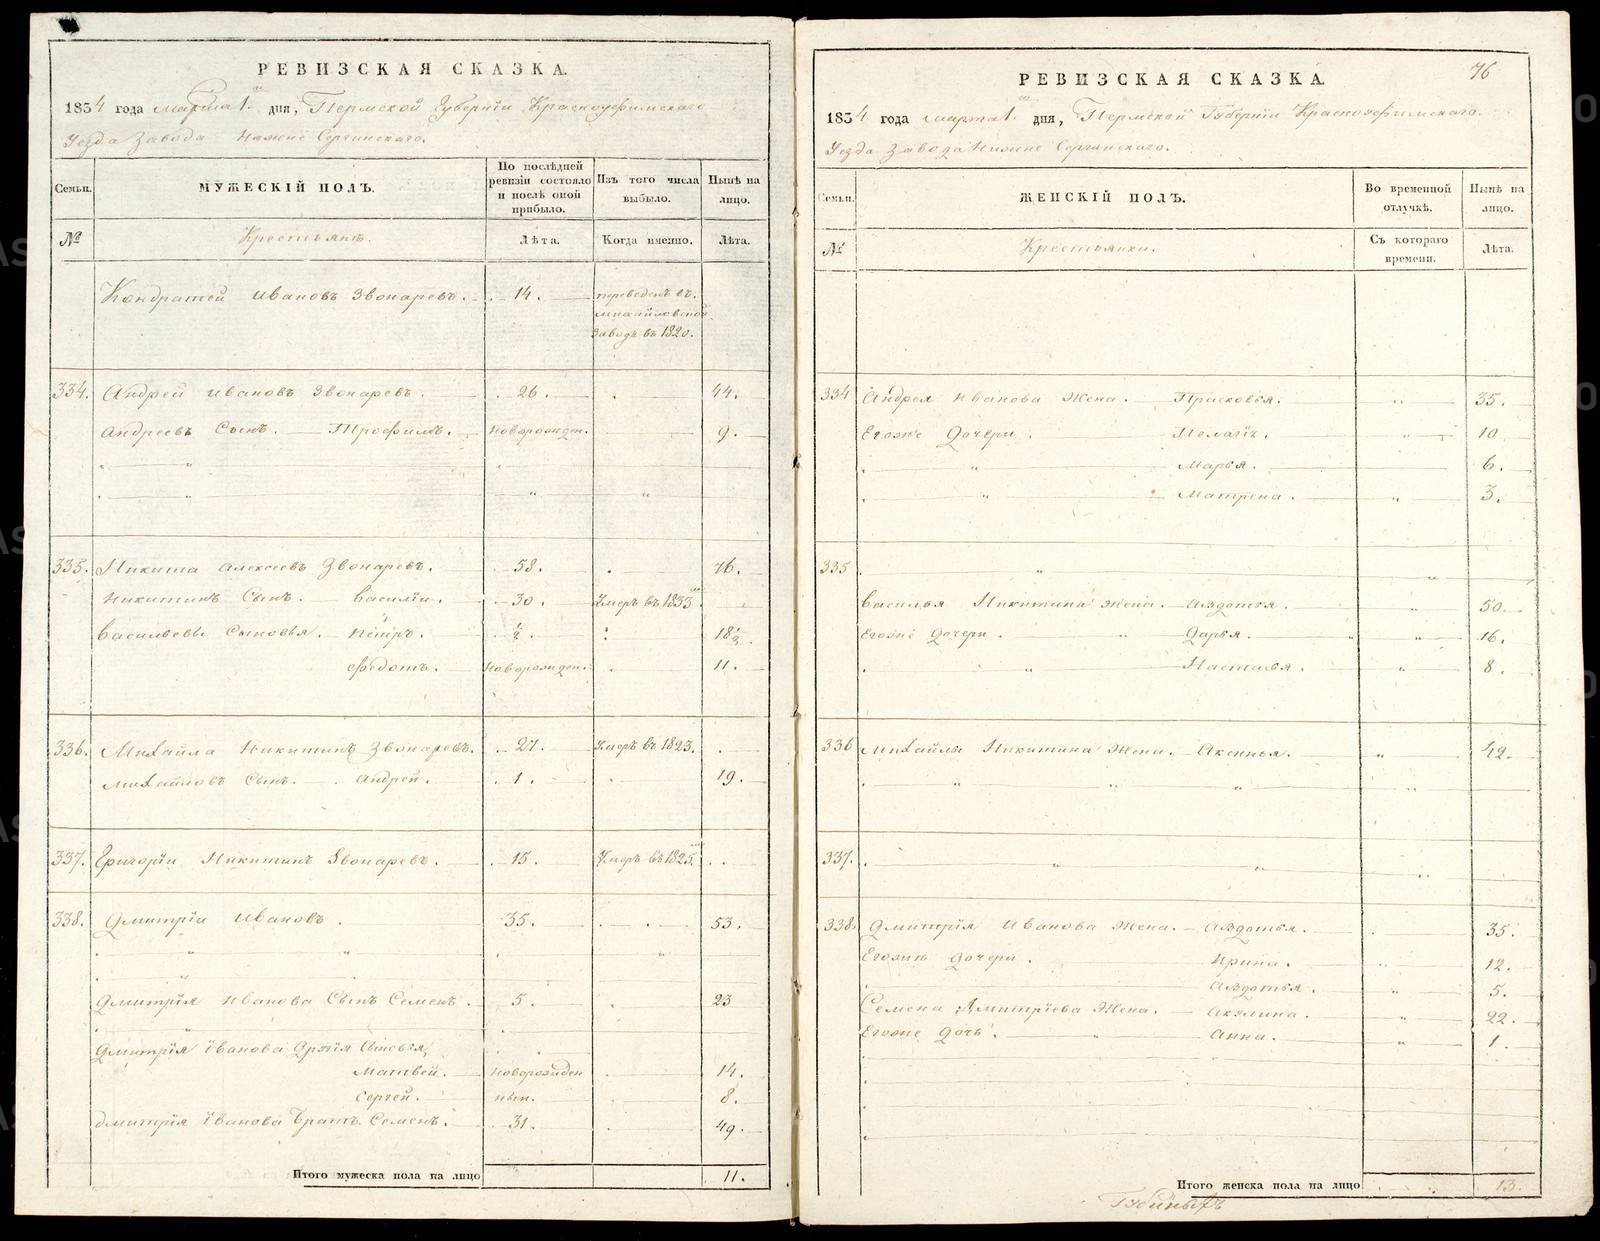 РЕВИЗСКАЯ СКАЗКА.
1834 года марта 1. дня, Пермской Губернiи Красноуфимскаго
Уезда Завода Нижне Сергинскаго.
Семьи.
МУЖЕСКІЙ ПОЛЪ.
По послѣдней ревизіи состояло и послѣ оной прибыло.
Изъ того числа выбыло.
Нынѣ на лицо.
№
Крестьянъ.
Лѣта.
Когда именно.
Лѣта.
Кондратей Ивановъ Звонаревъ. 14. переведенъ въ
завода въ 1820.
334. Андрей Ивановъ Звонаревъ. 26. 44.
Андреевъ Сынъ. Трофимъ. новорожден. 9.
335. Никита Алексеевъ Звонаревъ. 58. 76.
Никитинъ Сынъ. Василiи. 30. Умеръ въ 1833.
Васильевы Сыновья. Петръ. ½. 18½.
Федотъ. новорожден. 11.
336. Михайла Никитинъ Звонаревъ. 27. Умеръ въ 1823.
Михайловъ Сынъ. Андрей. 1. 19.
337. Григорiи Никитинъ Звонаревъ. 15. Умеръ въ 1825.
338. Дмитрiи Ивановъ. 35. 53.
Дмитрiя Иванова Сынъ Семенъ. 5. 23
Дмитрiя Iванова Другiя Сыновья,
Матвей. новорожден 14.
Сергей. ным. 8.
Дмитрiя Iванова Братъ Семенъ. 31. 49.
Итого мужеска пола на лицо 11.
76
РЕВИЗСКАЯ СКАЗКА.
1834 года марта 1. дня, Пермской Губернiи Красноуфимскаго.
Уезда Завода Нижне Сергинскаго.
Семьи.
ЖЕНСКІЙ ПОЛЪ.
Во временной отлучкѣ.
Нынѣ на лицо.
№
Крестьянки.
Съ котораго времени.
Лѣта.
334 Андрея Иванова Жена. Прасковья. 35.
Егоже Дочери. Пелагiя. 10
Марья. 6.
Матрена. 3.
335
Василья Никитина Жена. Авдотья. 50.
Егоже Дочери. Дарья. 16.
Настасья. 8.
336 Михайлы Никитина Жена. Аксинья. 42.
337.
338. Дмитрiя Иванова Жена. Авдотья. 35.
Егоже Дочери. Ирина. 12.
Авдотья. 5.
Семена Дмитрiева Жена. Акулина. 22.
Егоже Дочь. Анна. 1.
Итого женска пола на лицо 13.